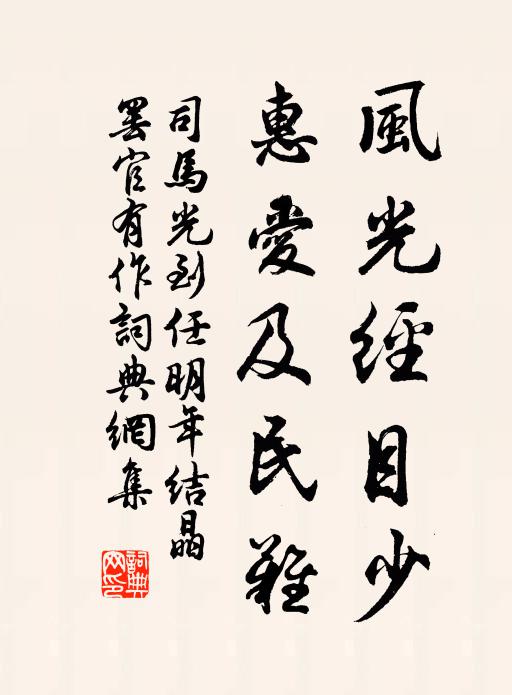 風光經目少
惠愛及民難
司馬光到任明年結晶
罢官有作詞典網集
詞典網印